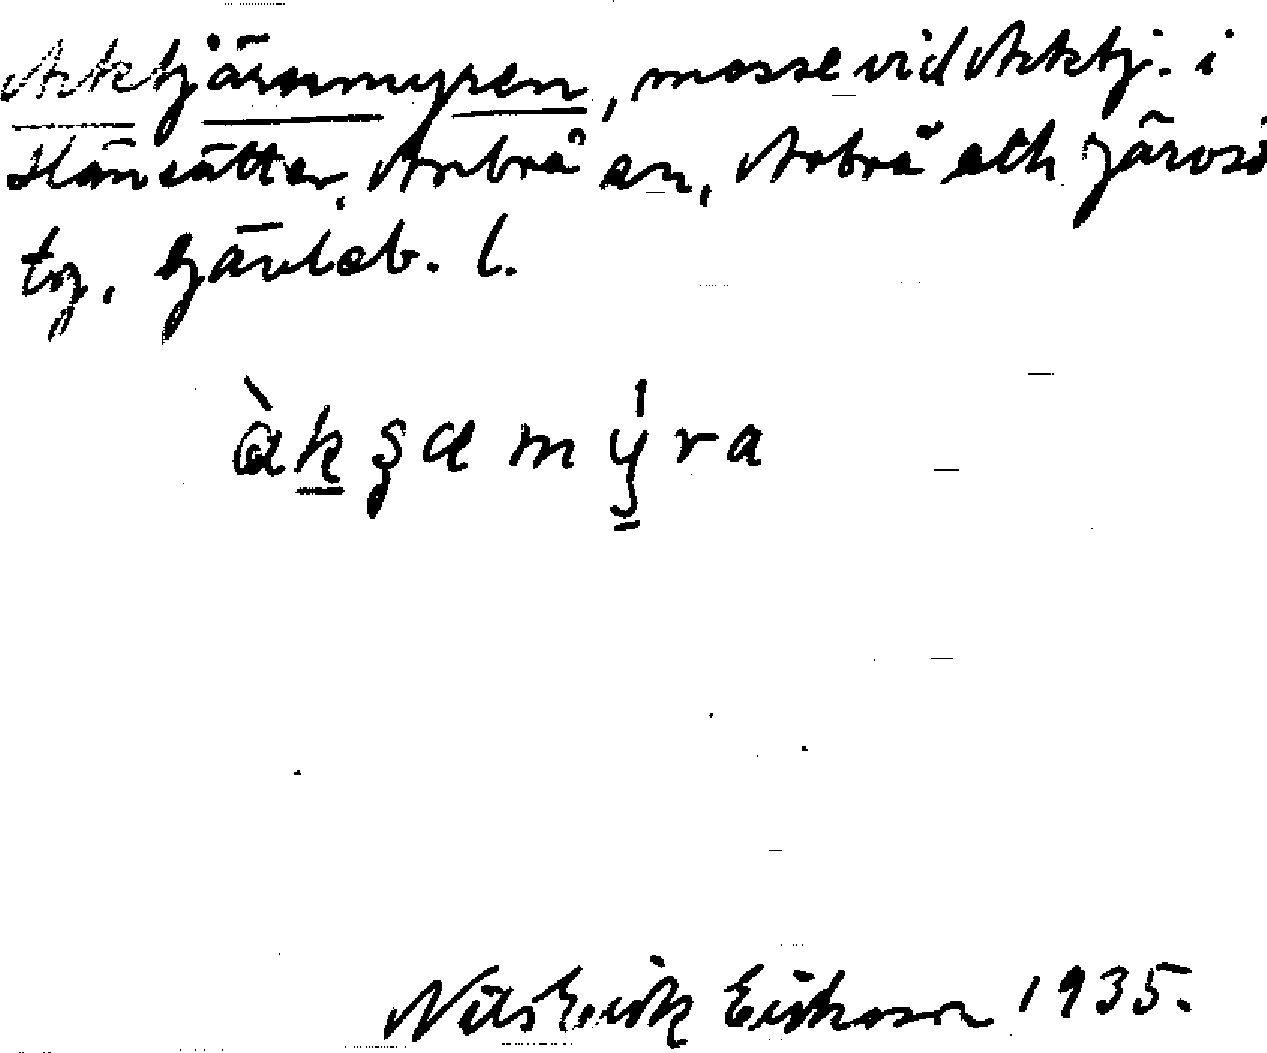 Arktjärnmyren, mosse vid Arktj. i
Hänsätter, Arbrå sn, Arbrå och Järvsö
tg, Gävleb. l.
àkʂamýra
Nils Erik Eriksson 1935.